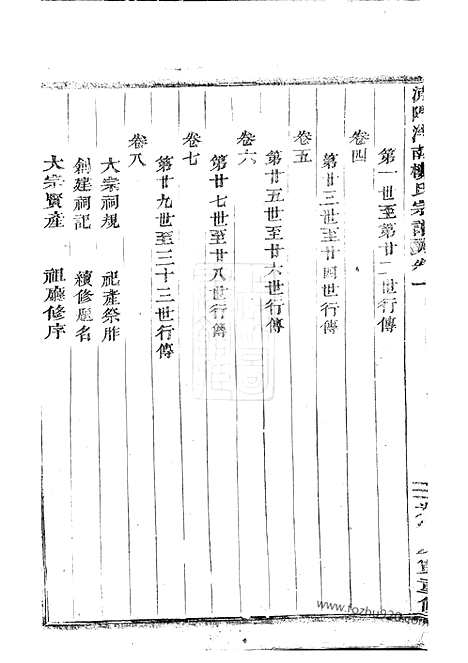 第一世至第廿二世行傳
卷四
第廿三世至廿四世行傳
卷五
第廿五世至廿六世行傳
卷六
第廿七世至廿八世行傳
卷七
第廿九世至三十三世行傳
卷八
大宗祠規 祀產祭胙
創建祠記 續修題名
大宗賢產 祖廳修序
www.fozhu920.com